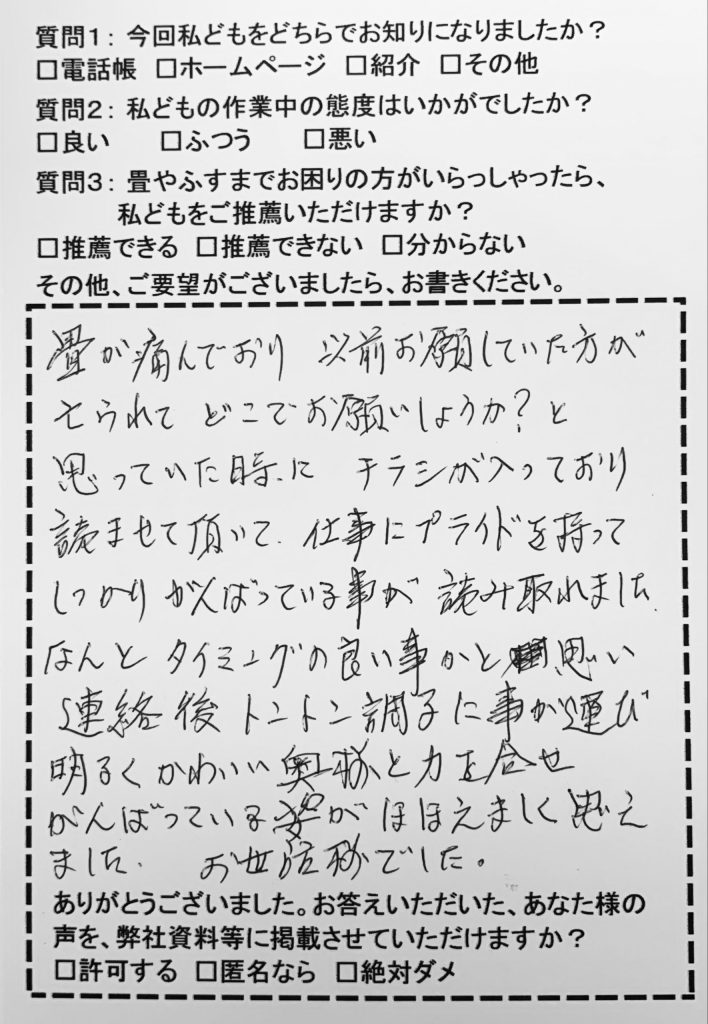 質問1: 今回私どもをどちらでお知りになりましたか?
□電話帳 □ホームページ □紹介 □その他
質問2: 私どもの作業中の態度はいかがでしたか?
□良い □ふつう □悪い
質問3: 畳やふすまでお困りの方がいらっしゃったら、
私どもをご推薦いただけますか?
□推薦できる □推薦できない □分からない
その他、ご要望がございましたら、お書きください。
畳が痛んでおり 以前お願していた方が
られて どこでお願いしようか? と
思っていた時に チラシが入っており
読ませて頂いて、仕事にプライドを持って
しっかりがんばっている事が 読み取れました。
なんと タイミングの良い事かと 思い
連絡後 トントン調子に事が運び
明るくかわいい奥様と力を合せ
がんばっている姿がほほえましく思え
ました。 お世話様でした。
ありがとうございました。お答えいただいた、あなた様の
声を、弊社資料等に掲載させていただけますか?
□許可する □匿名なら □絶対ダメ